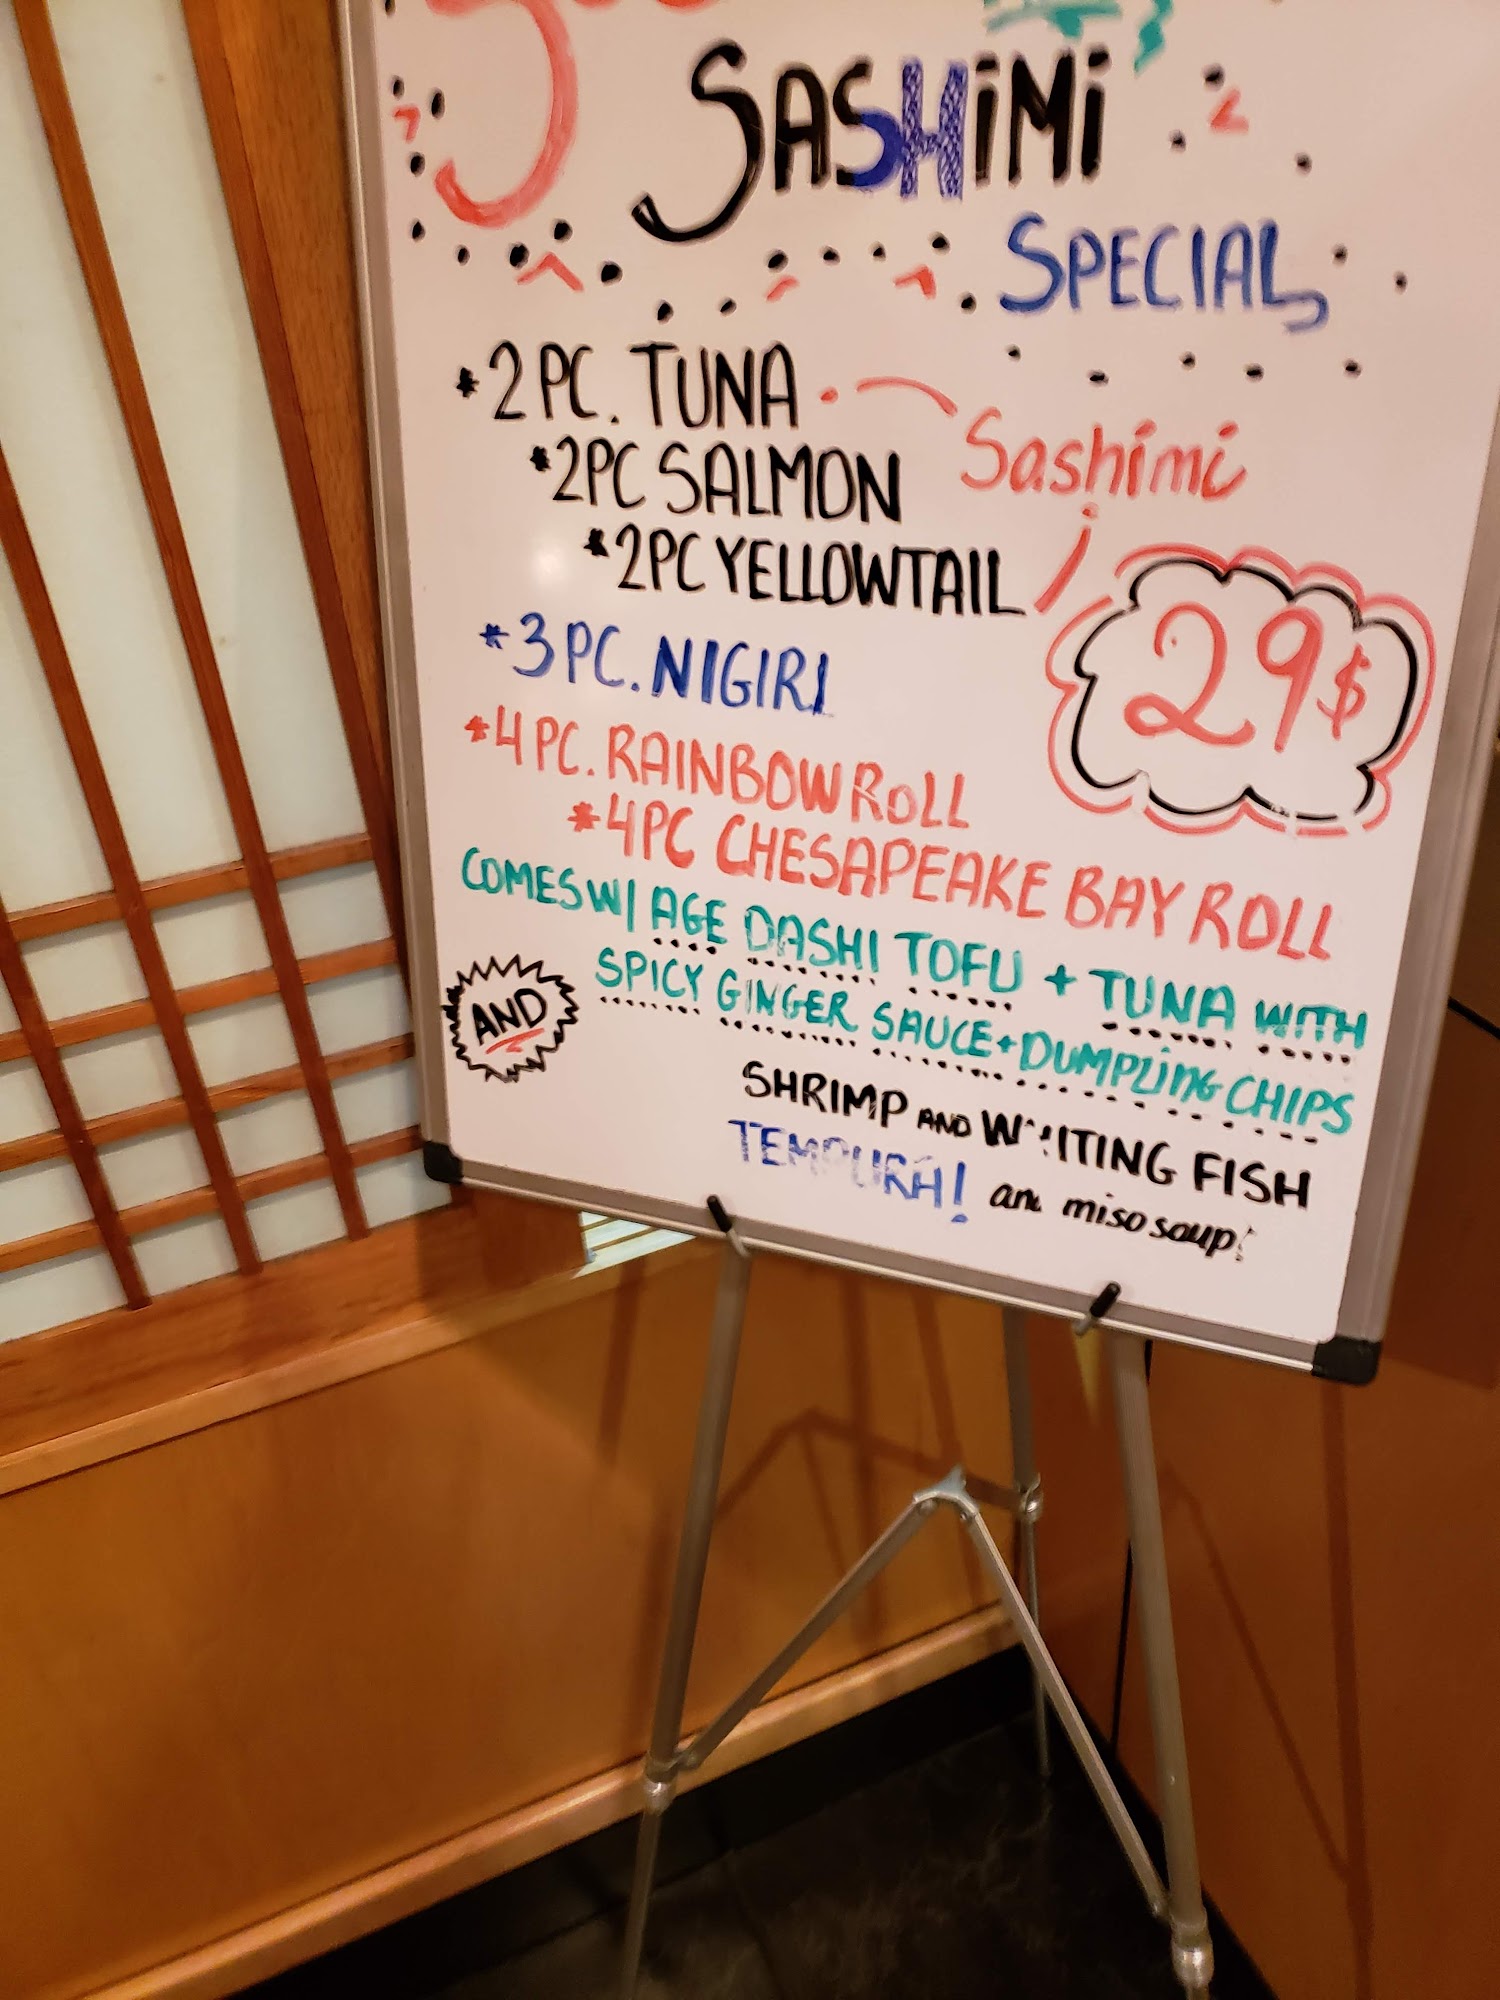 SASHiMi
SPECIAL
*2 PC. TUNA
Sashimi
*2PC SALMON
*2PC YELLOWTAIL
29$
*3 PC. NIGIRI
*4 PC. RAINBOW ROLL
*4PC CHESAPEAKE BAY ROLL
COMES W/ AGE DASHI TOFU + TUNA WITH
SPICY GINGER SAUCE + DUMPLiNG CHIPS
AND
SHRIMP AND WHITING FISH
TEMPURA! and miso soup!